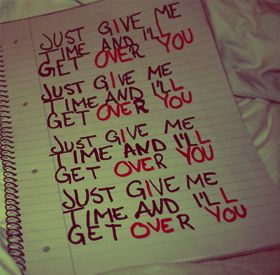 JUST GIVE ME
TIME AND I'LL
GET OVER YOU
JUST GIVE ME
TIME AND I'LL
GET OVER YOU
JUST GIVE ME
TIME AND I'LL
GET OVER YOU
JUST GIVE ME
TIME AND I'LL
GET OVER YOU